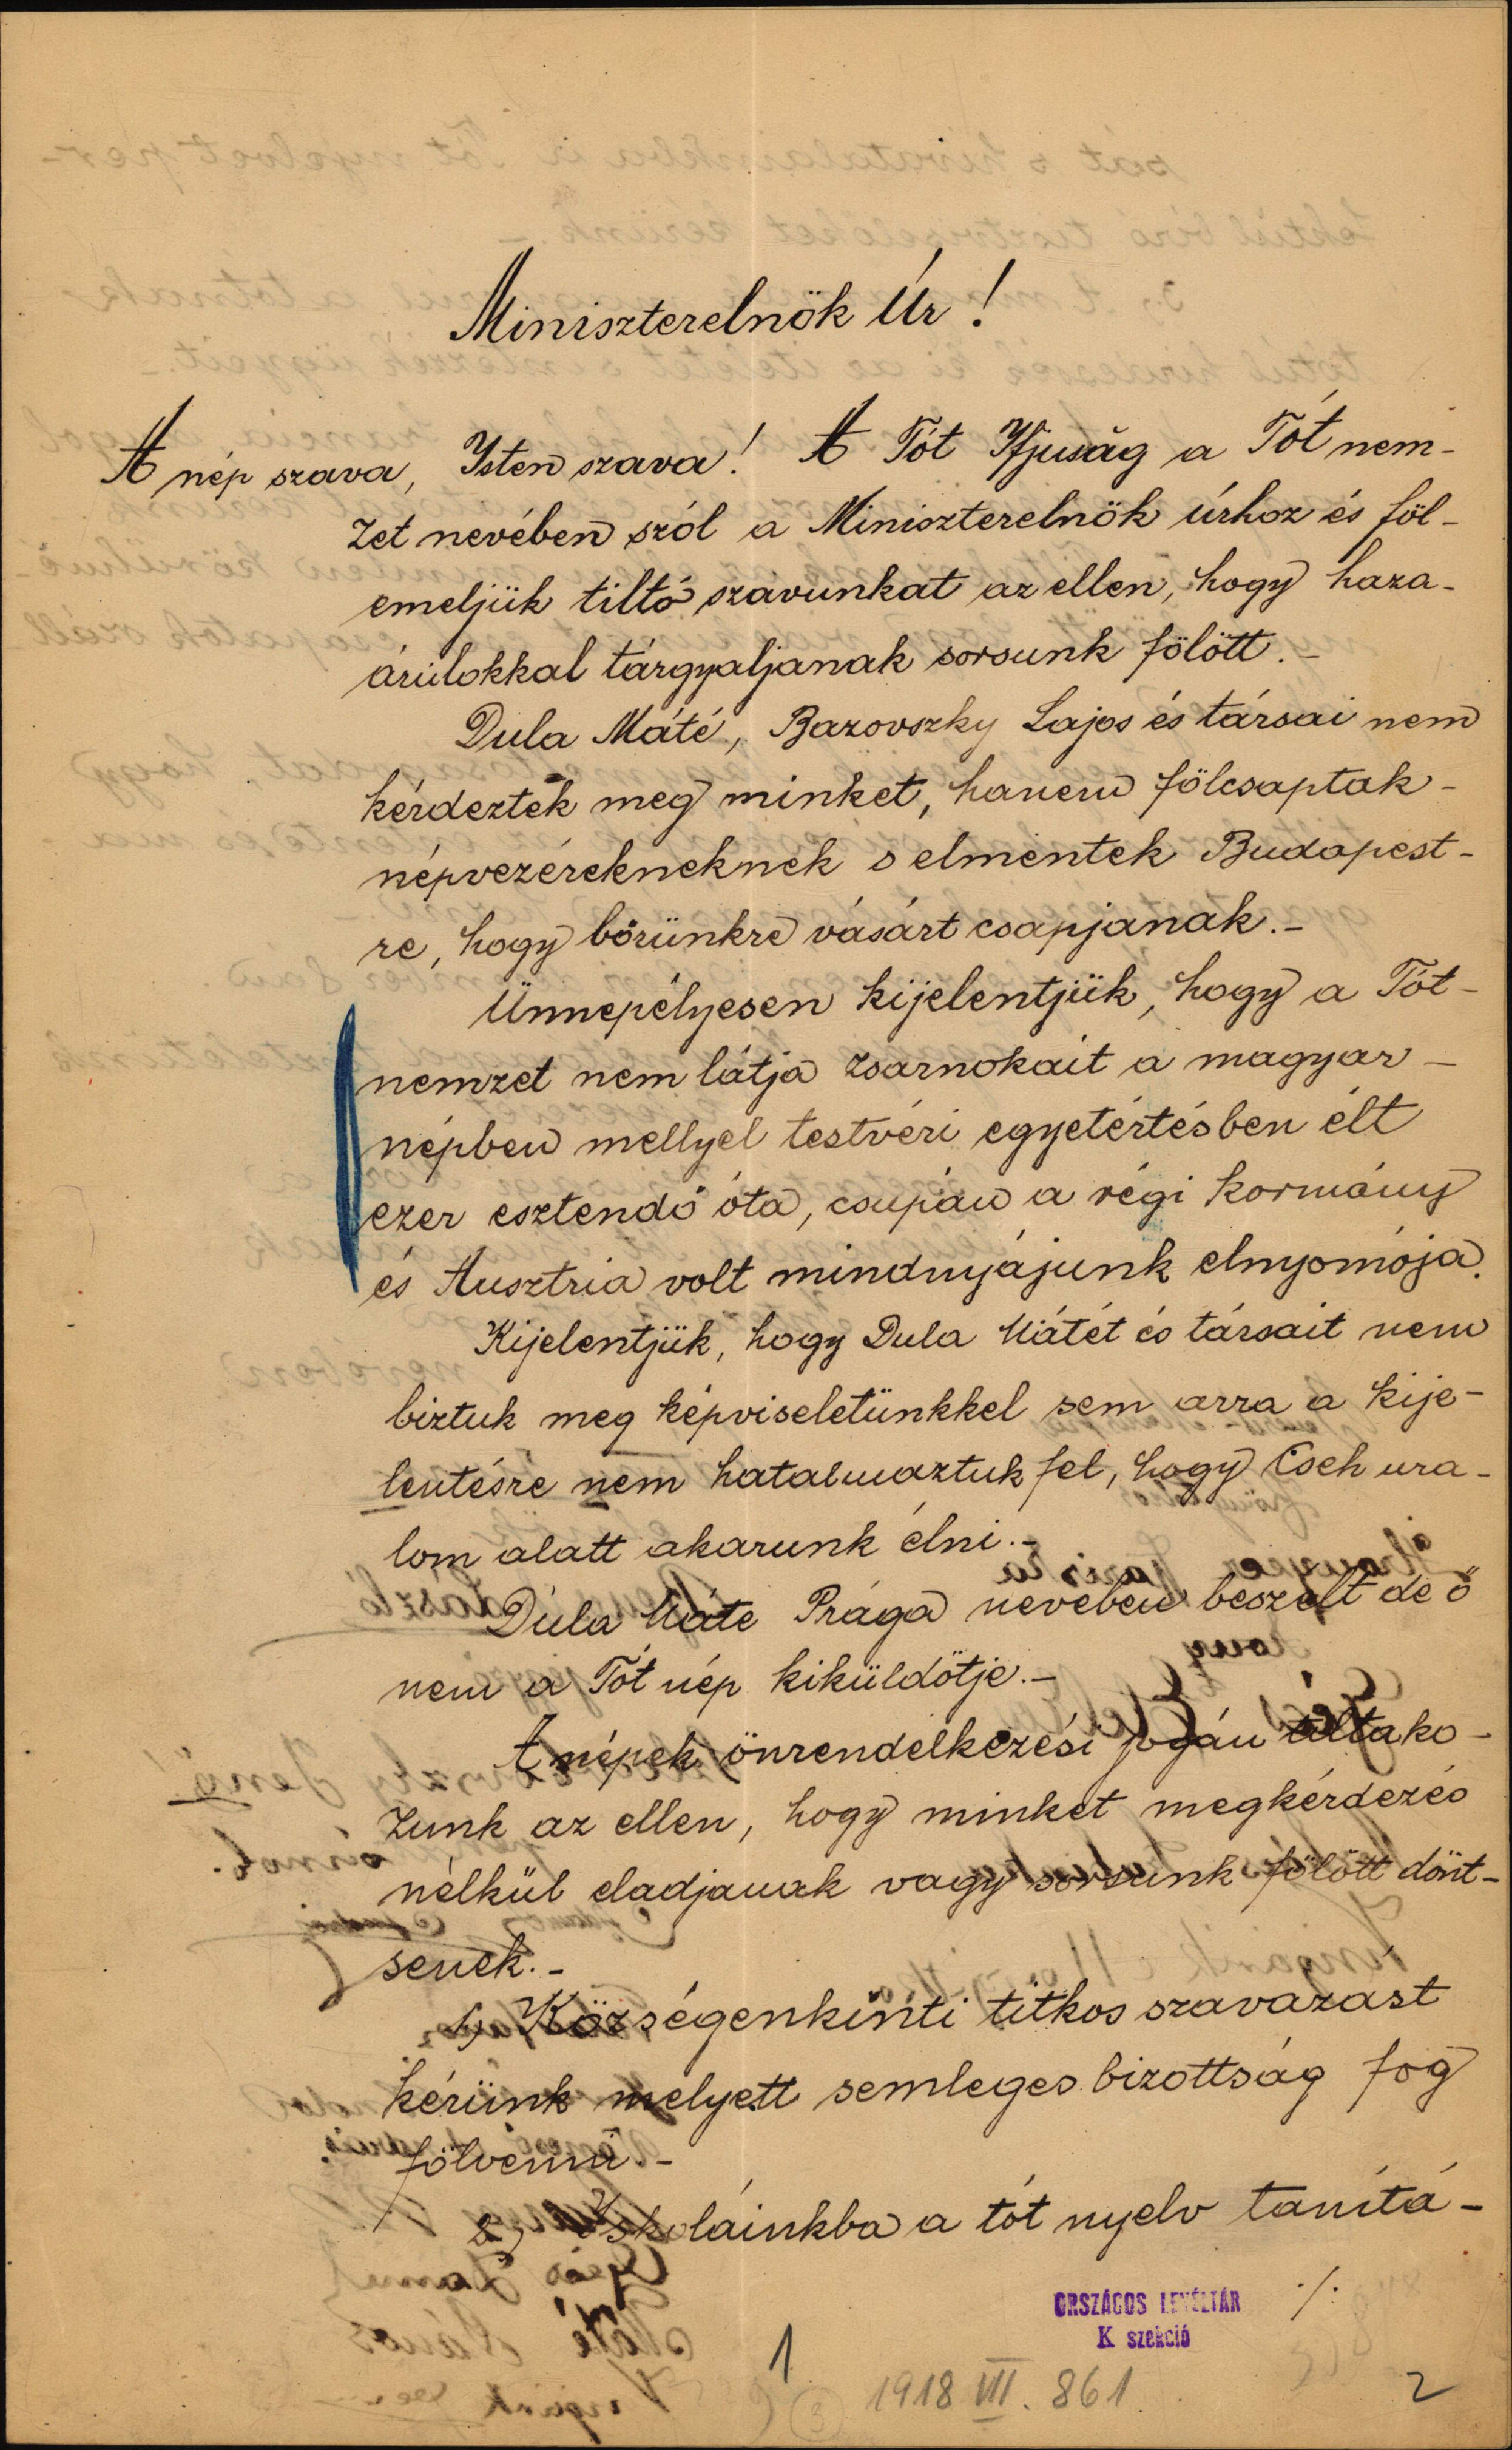 Miniszterelnök Úr!
A nép szava, Isten szava! A Tót Ifjuság a Tót nem-
zet nevében szól a Miniszterelnök úrhoz és föl-
emeljük tiltó szavunkat az ellen, hogy haza-
árulokkal tárgyaljanak sorsunk fölött.-
Dula Máté, Bazovszky Lajos és társai nem
kérdezték meg minket, hanem fölcsaptak-
népvezérekneknek s elmentek Budapest-
re, hogy bőrünkre vásárt csapjanak.-
Ünnepélyesen kijelentjük, hogy a Tót-
nemzet nem látja zsarnokait a magyar-
népben mellyel testvéri egyetértésben élt
ezer esztendő óta, csupán a régi kormány
és Ausztria volt mindnyájunk elnyomója.
Kijelentjük, hogy Dula Mátét és társait nem
biztuk meg képviseletünkkel sem arra a kije-
lentésre nem hatalmaztuk fel, hogy Cseh ura-
lom alatt akarunk élni.-
Dula Máte Prága nevében beszélt de ő
nem a Tót nép kiküldötje.-
A népek önrendelkezési jogán tiltako-
zunk az ellen, hogy minket megkérdezés
nélkül eladjanak vagy sorsunk fölött dönt-
senek.-
1, Községenkinti titkos szavazást
kérünk melyett semleges bizottság fog
fölvenni.-
2, Iskoláinkba a tót nyelv tanítá-
./.
ORSZÁGOS LEVÉLTÁR
K szekció
1
3
1918 VII. 861
2